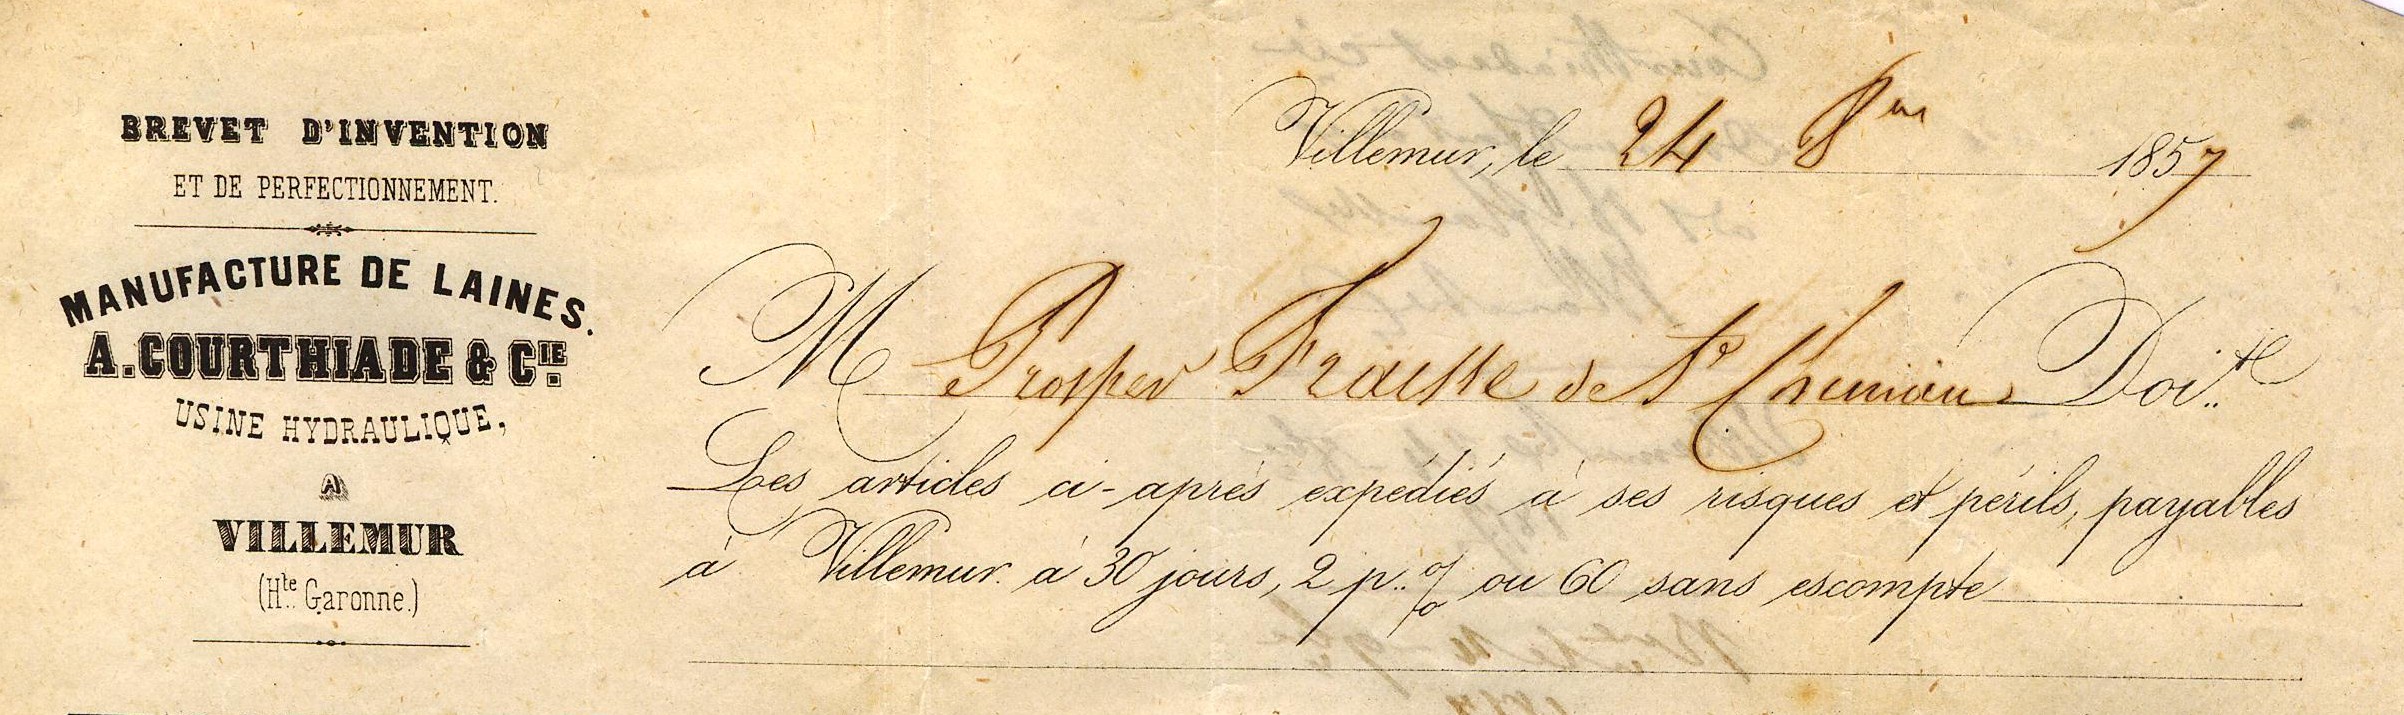 BREVET D'INVENTION
ET DE PERFECTIONNEMENT.
MANUFACTURE DE LAINES.
A. COURTHIADE & CIE.
USINE HYDRAULIQUE,
A
VILLEMUR
(Hte. Garonne.)
Villemur, le 24 8bre 1857
M Prosper Fraisse de St Chinian Doit
Les articles ci-après expédiés à ses risques et périls, payables
à Villemur à 30 jours, 2 p. % ou 60 sans escompte